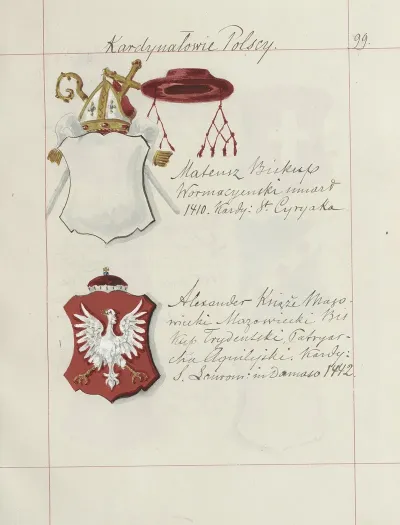 Kardynałowie Polscy.
99.
Mateusz Biskup
Wormacyenski umarł
1410. Kardy: St. Cyryaka
Alexander Książe Mazo-
wiecki Mazowiecki Bis
kup Trydentski, Patryar-
cha Aquilejski. Kardy:
S. Laurent: in Damaso 1442.